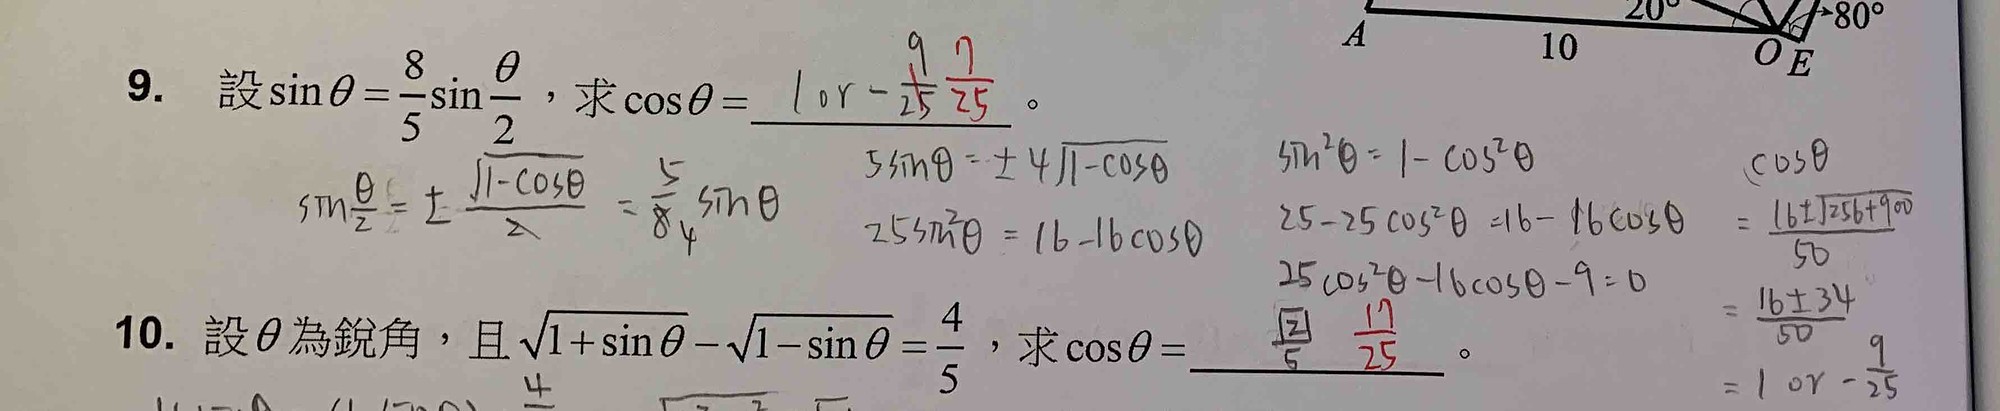 A 10 20° O E 80°
9. 設 sinθ = 8/5 sin θ/2，求 cosθ = 1 or - 9/25 7/25 。
sin θ/2 = ± √(1-cosθ)/2 = 5/8 4 sinθ
5sinθ = ± 4√(1-cosθ)
25sin²θ = 16-16cosθ
sin²θ = 1 - cos²θ
25-25cos²θ = 16 - 16cosθ
25cos²θ-16cosθ-9=0
cosθ
= 16±√(256+900)/50
= 16±34/50
= 1 or - 9/25
10. 設θ為銳角，且 √(1+sinθ) - √(1-sinθ) = 4/5，求 cosθ = 17/25 。